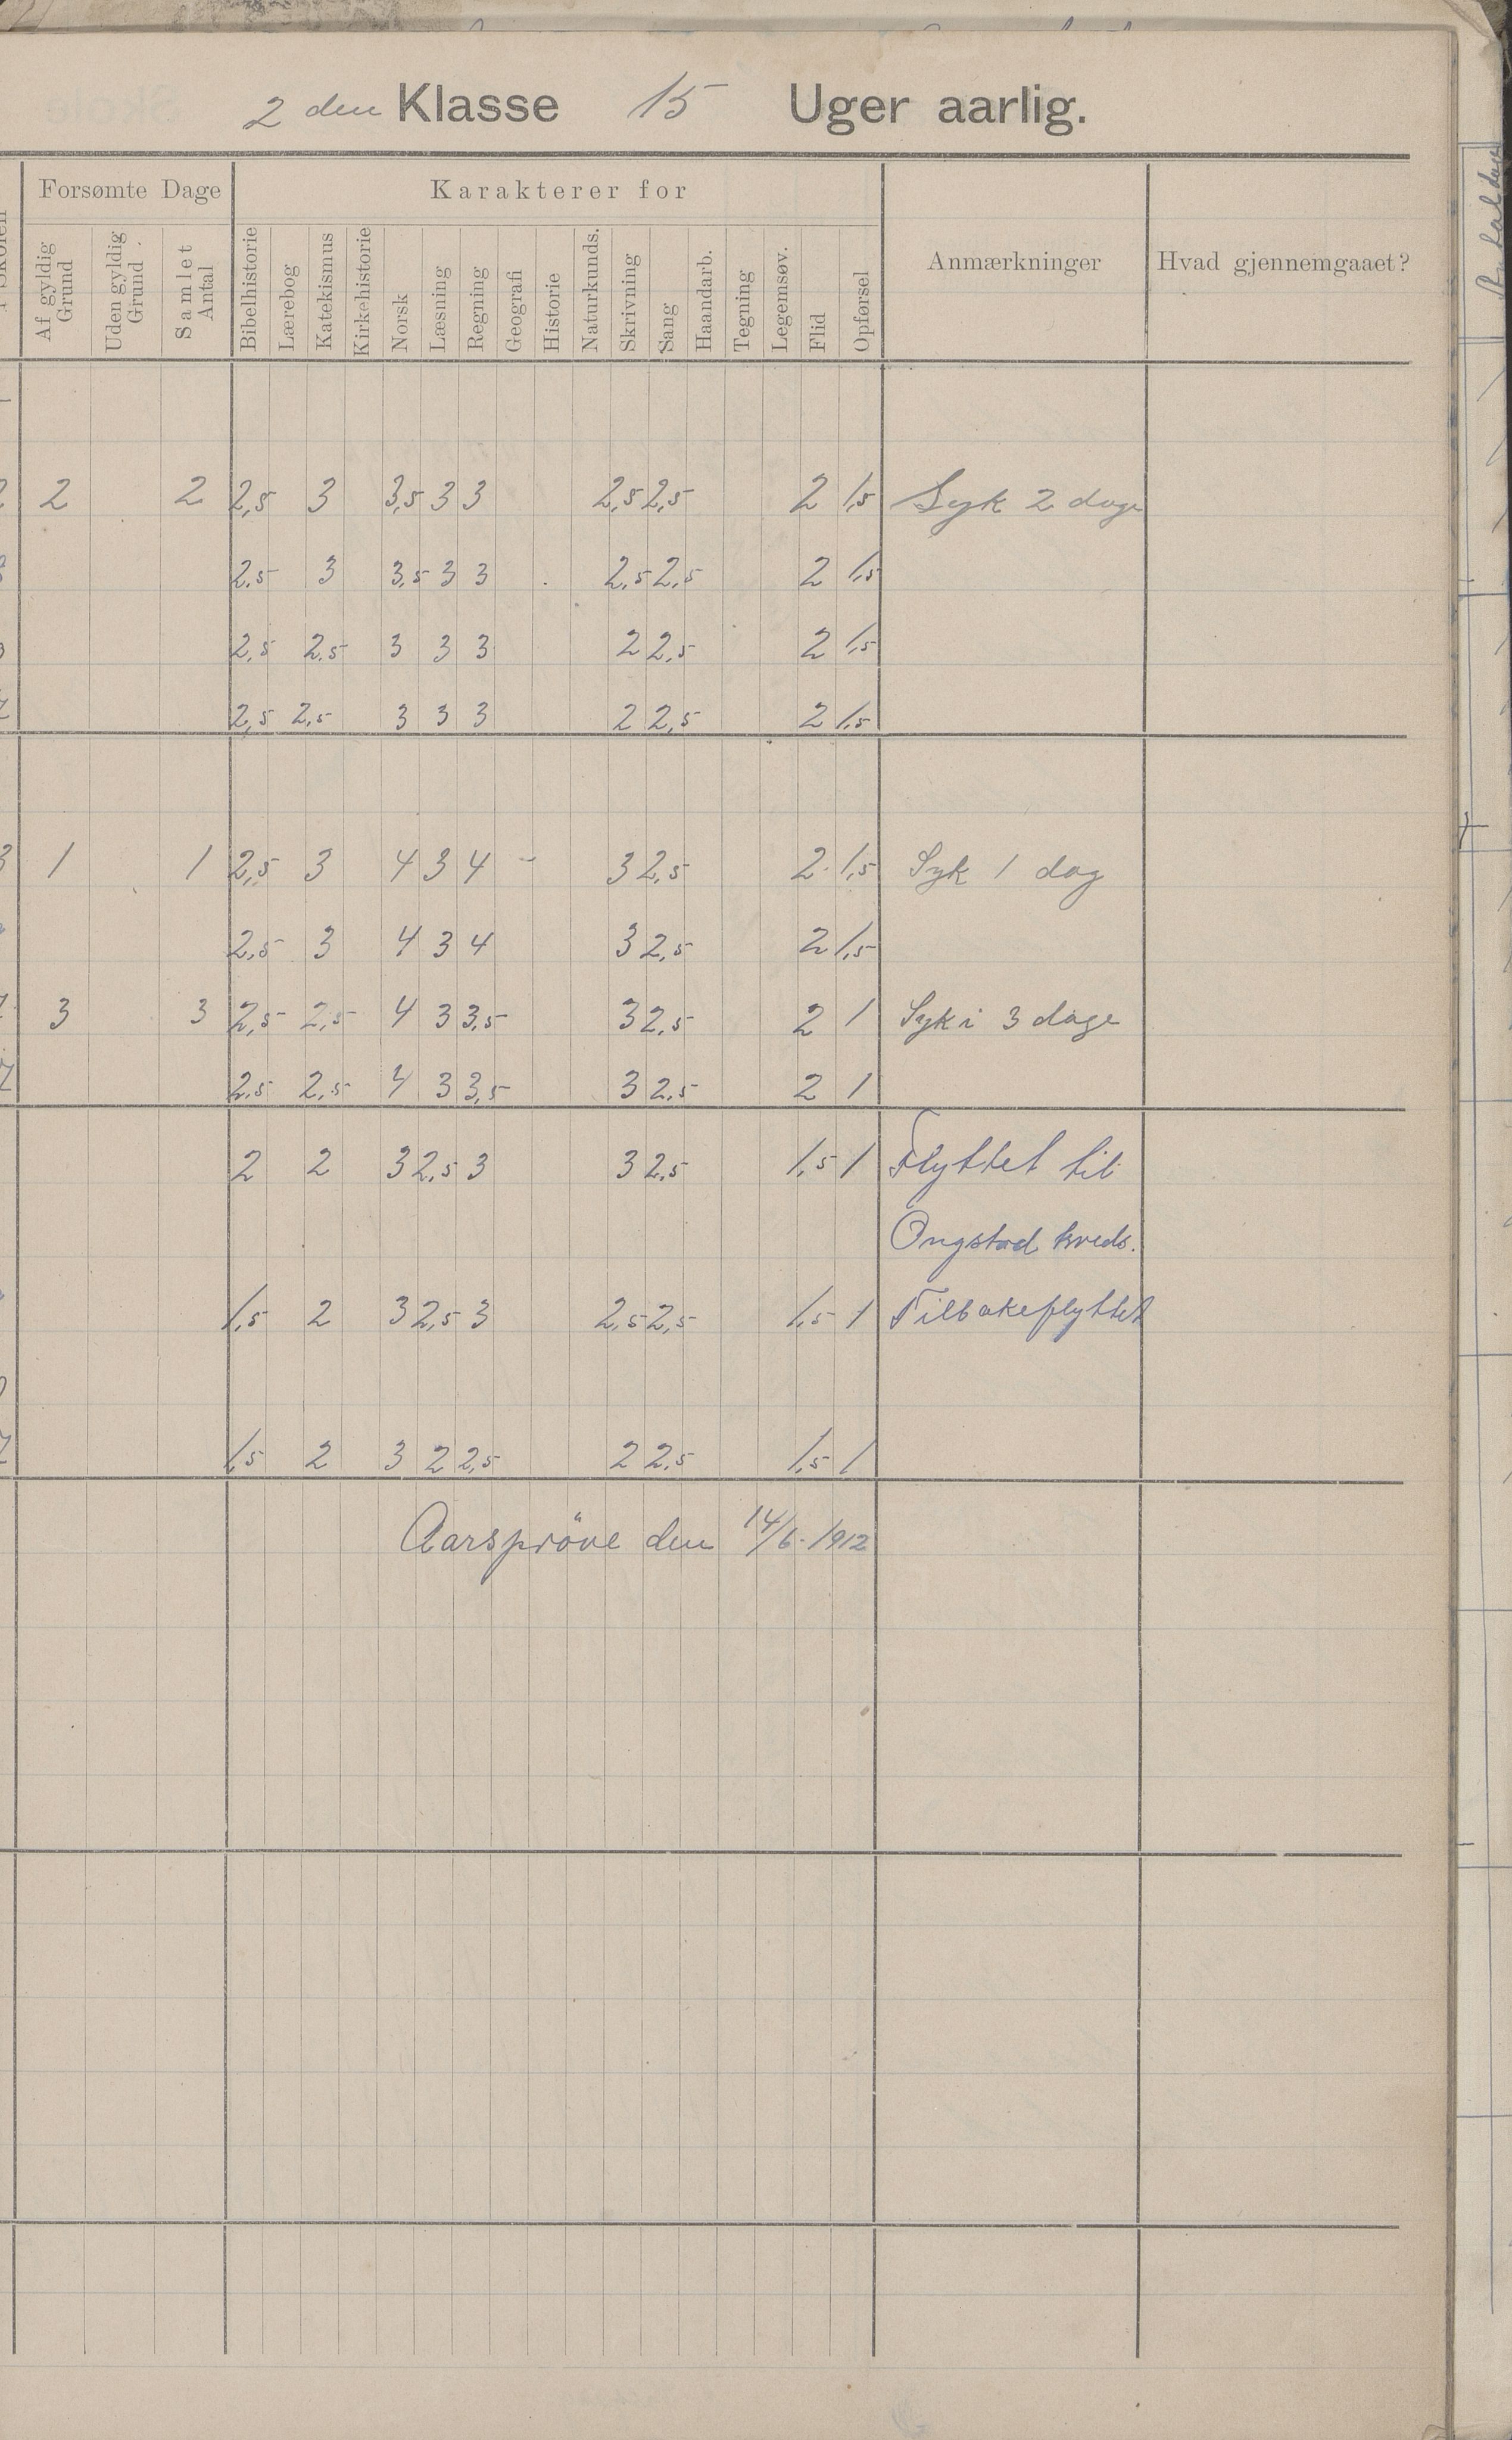 2 den Klasse 15 Uger aarlig.
Forsømte Dage Karakterer for
Af gyldig Grund Uden gyldig Grund Samlet Antal Bibelhistorie Lærebog Katekismus Kirkehistorie Norsk Læsning Regning Geografi Historie Naturkunds. Skrivning Sang Haandarb. Tegning Legemsøv. Flid Opførsel Anmærkninger Hvad gjennemgaaet?
2 2 2,5 3 3,5 3 3 2,5 2,5 2 1,5 Syk 2 dage
2,5 3 3,5 3 3 2,5 2,5 2 1,5
2,5 2,5 3 3 3 2 2,5 2 1,5
2,5 2,5 3 3 3 2 2,5 2 1,5
1 1 2,5 3 4 3 4 3 2,5 2 1,5 Syk 1 dag
2,5 3 4 3 4 3 2,5 2 1,5
3 3 2,5 2,5 4 3 3,5 3 2,5 2 1 Syk i 3 dage
2,5 2,5 4 3 3,5 3 2,5 2 1
2 2 3 2,5 3 3 2,5 1,5 1 Flyttet til
Ongstad kreds.
1,5 2 3 2,5 3 2,5 2,5 1,5 1 Tilbakeflyttet
1,5 2 3 2 2,5 2 2,5 1,5 1
Aarspröve den 14/6-1912